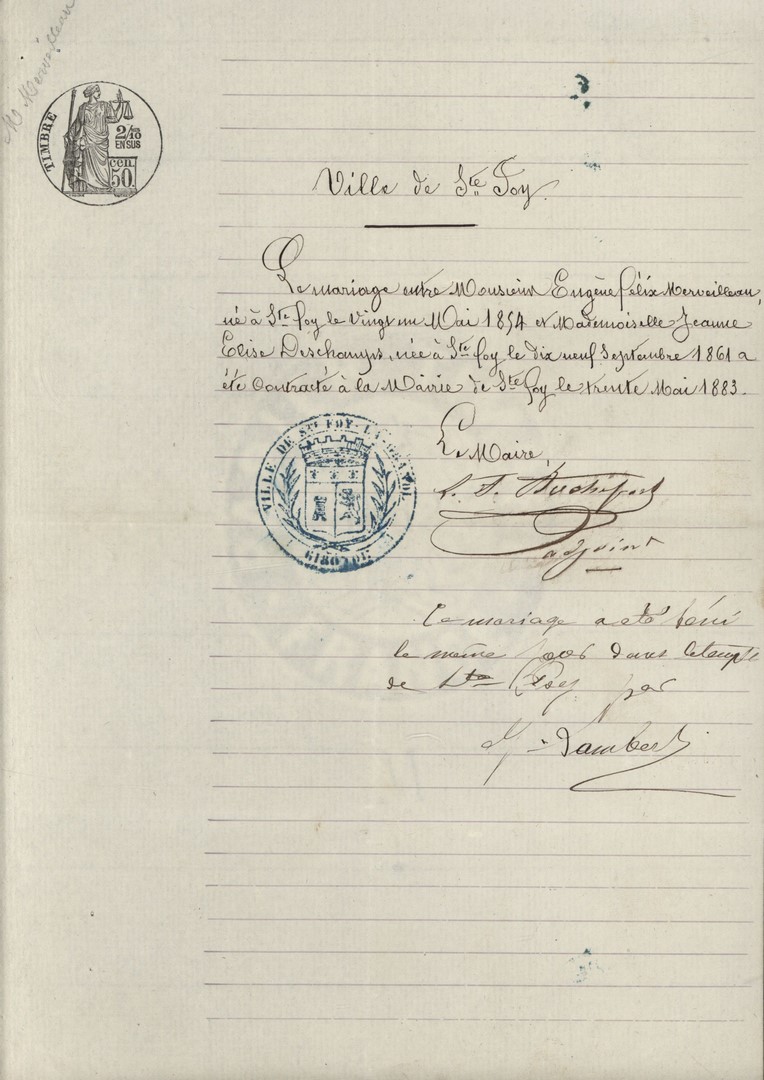 M Merveilleau
TIMBRE
2/10
EN SUS
CEN.
50.
Ville de Ste Foy.
Le mariage entre Monsieur Eugène Félix Merveilleau,
né à Ste foy le vingt un Mai 1854 et Mademoiselle Jeanne
Elise Deschamps, née à Ste foy le dix neuf Septembre 1861 a
été Contracté à la Mairie de Ste foy le trente Mai 1883.
Le Maire,
adjoint
VILLE DE STE FOY-LA-GRANDE
GIRONDE
Ce mariage a été béni
le même jour dans le temple
de Ste Foy par